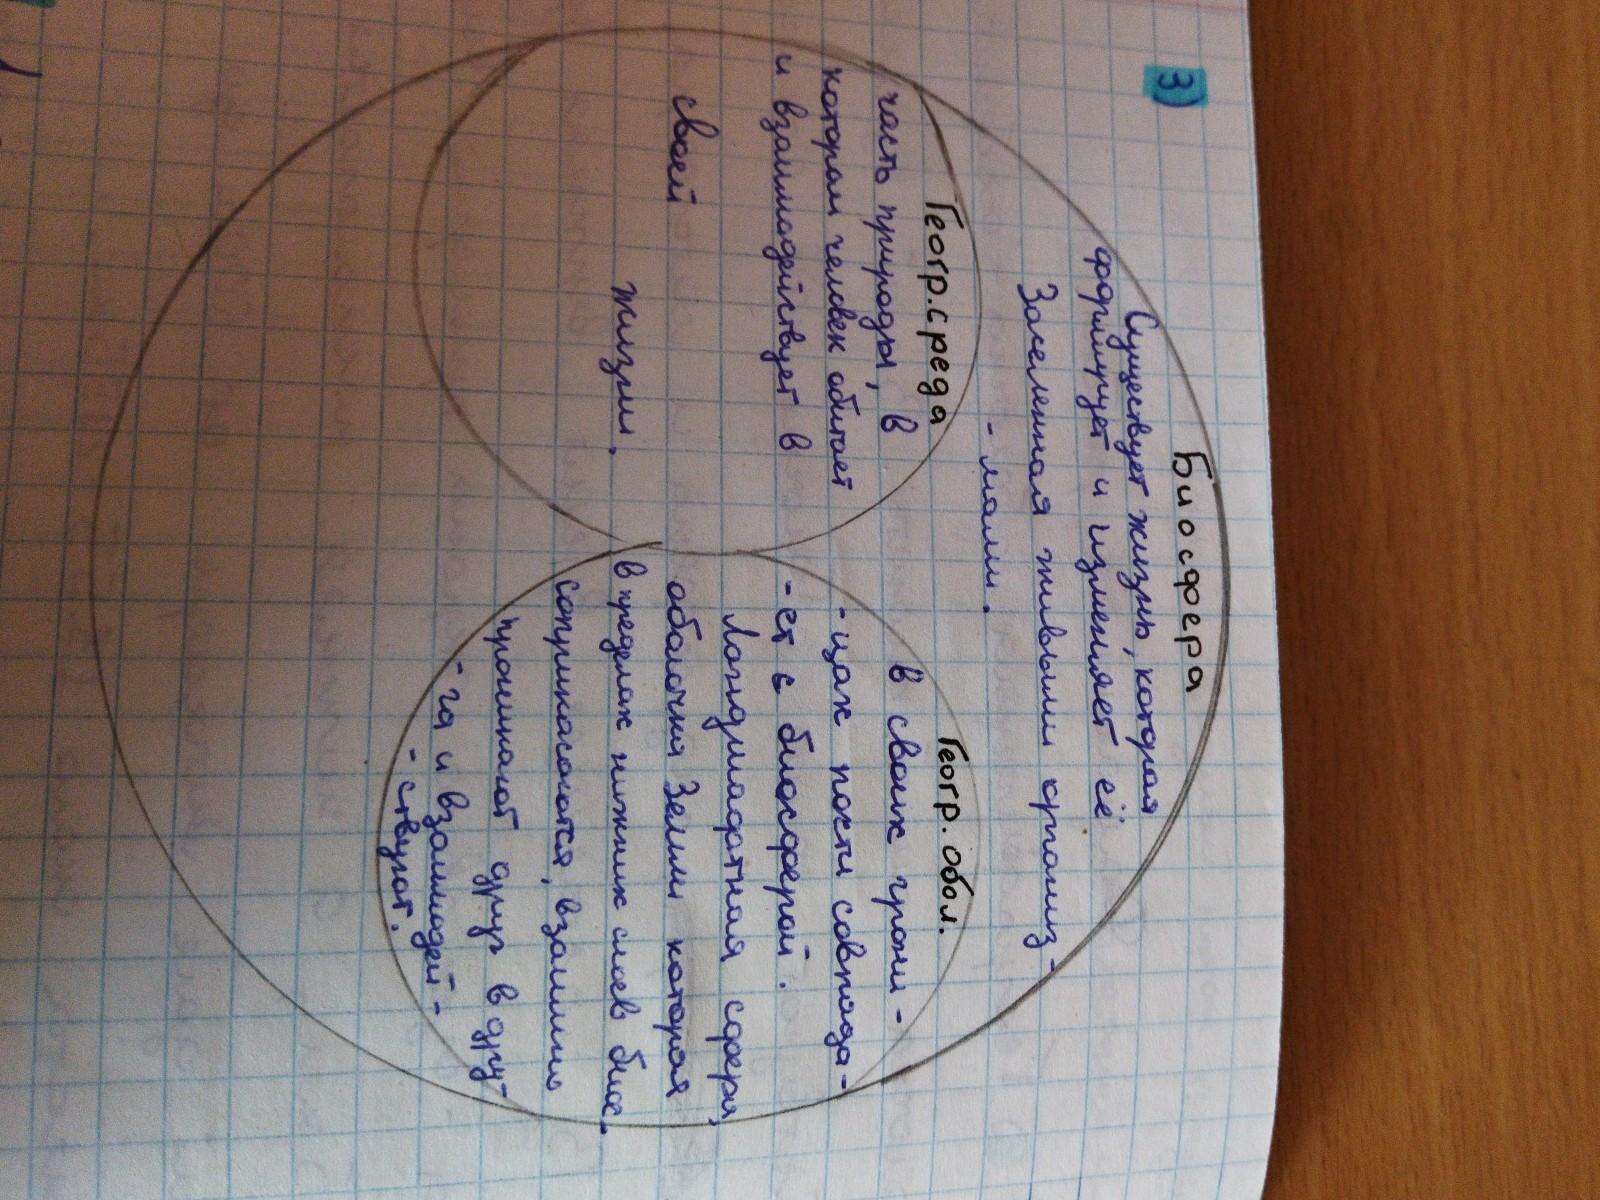 3)
Биосфера
Существует жизнь, которая
формирует и изменяет её
Заселенная живыми организ-
- мами.
Геогр. среда
часть природы, в
котором человек обитает
и взаимодействует в
своей
жизни.
Геогр. обол.
в своих грани-
- цах почти совпада-
- ет с биосферой.
Ландшафтная сфера,
оболочка Земли которая
в пределах нижних слоев био.
соприкасаются, взаимно
проникают друг в дру-
- га и взаимодей-
- ствуют.